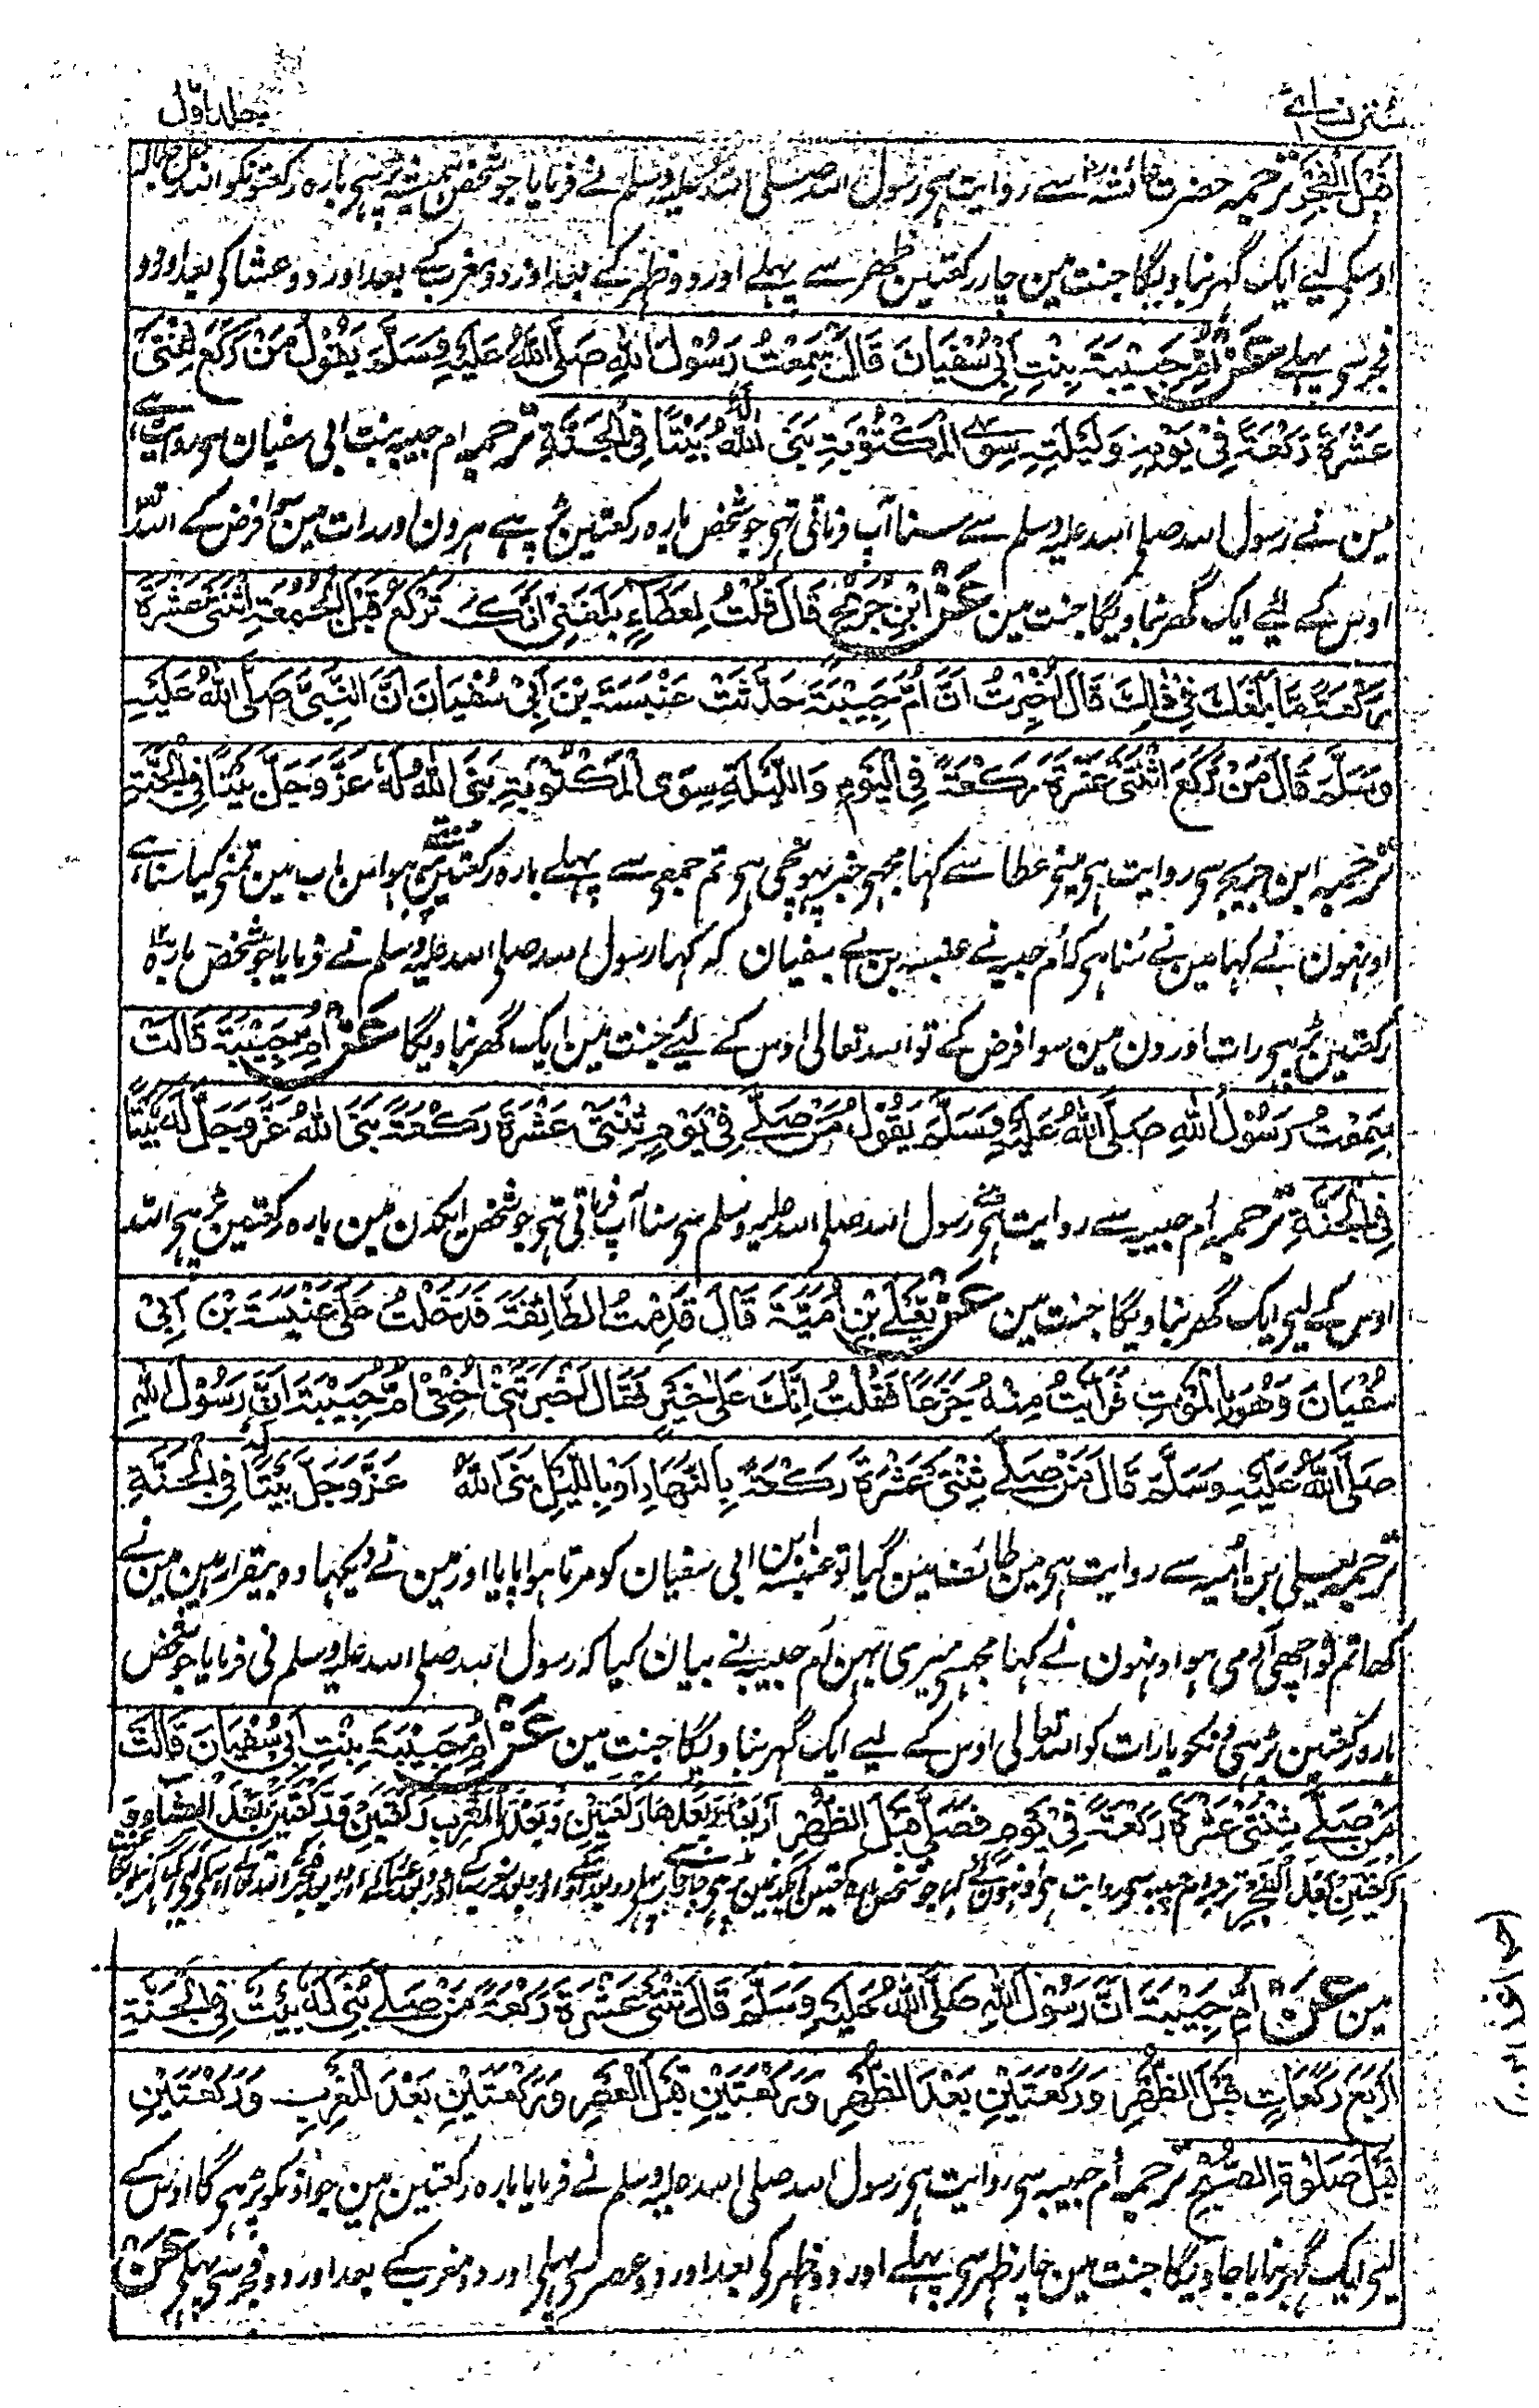 سنن نسائے
جلد اول
قبل الفجر ترجمہ حضرت عائشہ رض سے روایت ہی رسول اللہ صلی اللہ علیہ وسلم نے فرمایا جو شخص ہمیشہ پڑہی بارہ رکعتونکو اللہ
اوسکے لیے ایک گہر بناویگا جنت مین چار رکعتین ظہر سے پہلے اور دو ظہر کے بعد اور دو مغرب کے بعد اور دو عشا کی بعد اور دو
فجر سی پہلے عَنْ اُمِّ حَبِيْبَةَ بِنْتِ اَبِىْ سُفْيَانَ قَالَتْ سَمِعْتُ رَسُوْلَ اللهِ صَلَّى اللهُ عَلَيْهِ وَسَلَّمَ يَقُوْلُ مَنْ رَكَعَ ثِنْتَىْ
عَشْرَةَ رَكْعَةً فِىْ يَوْمِهٖ وَلَيْلَتِهٖ سِوَى الْمَكْتُوْبَةِ بَنَى اللهُ لَهٗ بَيْتًا فِى الْجَنَّةِ ترجمہ ام حبیبہ بنت ابی سفیان سی روایت ہے
مین نے رسول اللہ صلی اللہ علیہ وسلم سے سنا آپ فرماتی تہی جو شخص بارہ رکعتین پڑہے ہر دن اور رات مین سوا فرض کے اللہ
اوس کے لئے ایک گھر بناویگا جنت مین عَنْ ابْنِ جُرَيْجٍ قَالَ قُلْتُ لِعَطَاءٍ بَلَغَنِىْ اَنَّكَ تَرْكَعُ قَبْلَ الْجُمُعَةِ اثْنَتَىْ عَشْرَةَ
رَكْعَةً مَا بَلَغَكَ فِىْ ذٰلِكَ قَالَ اُخْبِرْتُ اَنَّ اُمَّ حَبِيْبَةَ حَدَّثَتْ عَنْبَسَةَ بْنَ اَبِىْ سُفْيَانَ اَنَّ النَّبِىَّ صَلَّى اللهُ عَلَيْهِ
وَسَلَّمَ قَالَ مَنْ رَكَعَ اثْنَتَىْ عَشْرَةَ رَكْعَةً فِى الْيَوْمِ وَاللَّيْلَةِ سِوَى الْمَكْتُوْبَةِ بَنَى اللهُ لَهٗ عَزَّ وَجَلَّ بَيْتًا فِى الْجَنَّةِ
ترجمہ ابن جریج سی روایت ہی مینے عطا سے کہا مجہی خبر پہونچی ہی تم جمعی سے پہلے بارہ رکعتین پڑہتے ہو اس باب مین تمنی کیا سنا ہے
اونہون نے کہا مین نے سنا ہی کہ ام حبیبہ نے عنبسہ بن ابی سفیان کہ کہا رسول اللہ صلی اللہ علیہ وسلم نے فرمایا جو شخص بارہ
رکعتین پڑہی رات اور دن مین سوا فرض کے تو اللہ تعالی اوس کے لیے جنت مین ایک گھر بناویگا عَنْ اُمِّ حَبِيْبَةَ قَالَتْ
سَمِعْتُ رَسُوْلَ اللهِ صَلَّى اللهُ عَلَيْهِ وَسَلَّمَ يَقُوْلُ مَنْ صَلّٰى فِىْ يَوْمٍ ثِنْتَىْ عَشْرَةَ رَكْعَةً بَنَى اللهُ عَزَّ وَجَلَّ لَهٗ بَيْتًا
فِى الْجَنَّةِ ترجمہ ام حبیبہ سے روایت ہی رسول اللہ صلی اللہ علیہ وسلم سی سنا آپ فرماتی تہی جو شخص ایکدن مین بارہ رکعتین پڑہی اللہ
اوس کے لیی ایک گھر بناویگا جنت مین عَنْ يَعْلَى بْنِ اُمَيَّةَ قَالَ قَدِمْتُ الطَّائِفَ فَدَخَلْتُ عَلٰى عَنْبَسَةَ بْنِ اَبِىْ
سُفْيَانَ وَهُوَ بِالْمَوْتِ فَرَاَيْتُ مِنْهُ جَزَعًا فَقُلْتُ اِنَّكَ عَلٰى خَيْرٍ فَقَالَ اَخْبَرَتْنِىْ اُخْتِىْ اُمُّ حَبِيْبَةَ اَنَّ رَسُوْلَ اللهِ
صَلَّى اللهُ عَلَيْهِ وَسَلَّمَ قَالَ مَنْ صَلّٰى ثِنْتَىْ عَشْرَةَ رَكْعَةً بِالنَّهَارِ اَوْ بِاللَّيْلِ بَنَى اللهُ عَزَّ وَجَلَّ لَهٗ بَيْتًا فِى الْجَنَّةِ
ترجمہ یعلی بن امیہ سے روایت ہی مین طائف مین گیا تو عنبسہ ابن ابی سفیان کو مرتا ہوا پایا اور مین نے دیکہا وہ بیقرار ہین مین نے
کہا تم تو اچھی آدمی ہو اونہون نے کہا مجہسی میری بہن ام حبیبہ نے بیان کیا کہ رسول اللہ صلی اللہ علیہ وسلم نی فرمایا جو شخص
بارہ رکعتین پڑہی دنکو یا رات کو اللہ تعالی اوس کے لیے ایک گہر بناویگا جنت مین عَنْ اُمِّ حَبِيْبَةَ بِنْتِ اَبِىْ سُفْيَانَ قَالَتْ
مَنْ صَلّٰى ثِنْتَىْ عَشْرَةَ رَكْعَةً فِىْ يَوْمٍ فَصَلّٰى قَبْلَ الظُّهْرِ اَرْبَعًا وَبَعْدَهَا رَكْعَتَيْنِ وَبَعْدَ الْمَغْرِبِ رَكْعَتَيْنِ وَرَكْعَتَيْنِ بَعْدَ الْعِشَاءِ وَ
رَكْعَتَيْنِ بَعْدَ الْفَجْرِ ترجمہ ام حبیبہ سی روایت ہی اونہون نے کہا جو شخص بارہ رکعتین ایکدن مین پڑہی
مین عَنْ اُمِّ حَبِيْبَةَ اَنَّ رَسُوْلَ اللهِ صَلَّى اللهُ عَلَيْهِ وَسَلَّمَ قَالَ ثِنْتَىْ عَشْرَةَ رَكْعَةً مَنْ صَلّٰى بُنِىَ لَهٗ بَيْتٌ فِى الْجَنَّةِ
اَرْبَعُ رَكَعَاتٍ قَبْلَ الظُّهْرِ وَرَكْعَتَيْنِ بَعْدَ الظُّهْرِ وَرَكْعَتَيْنِ قَبْلَ الْعَصْرِ وَرَكْعَتَيْنِ بَعْدَ الْمَغْرِبِ وَرَكْعَتَيْنِ
قَبْلَ صَلٰوةِ الصُّبْحِ ترجمہ ام حبیبہ سی روایت ہی رسول اللہ صلی اللہ علیہ وسلم نے فرمایا بارہ رکعتین ہین جو اونکو پڑہی گا اوس کے
لیی ایک گہر بنایا جاویگا جنت مین چار ظہر سی پہلے اور دو ظہر کی بعد اور دو عصر سی پہلی اور دو مغرب کے بعد اور دو فجر سی پہلی عَنْ